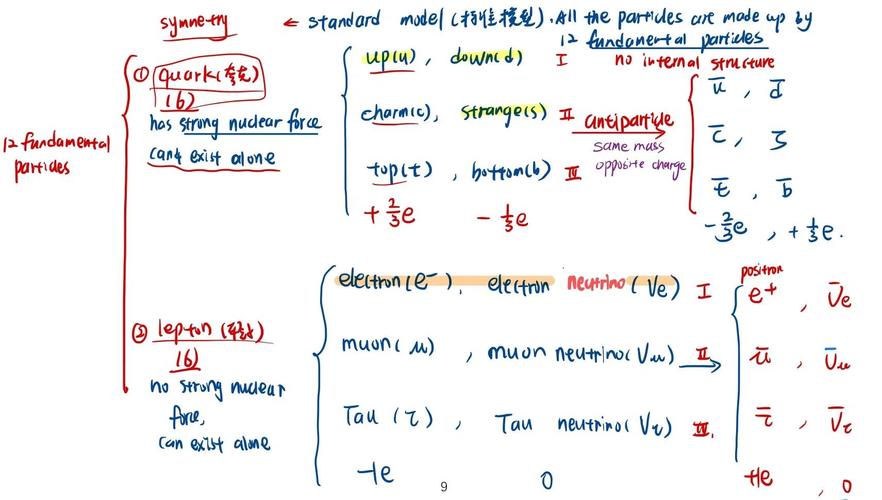 symmetry ← standard model (标准模型). All the particles are made up by
12 fundamental particles
no internal structure
12 fundamental
particles
① quark (夸克)
(6)
has strong nuclear force
can't exist alone
up(u), down(d) I
charm(c), strange(s) II
top(t), bottom(b) III
+ 2/3 e - 1/3 e
antiparticle
same mass
opposite charge
u̅, d̅
c̅, s̅
t̅, b̅
- 2/3 e, + 1/3 e.
② lepton (轻子)
(6)
no strong nuclear
force,
can exist alone
electron(e⁻), electron neutrino (Ve) I
muon(μ), muon neutrino(Vμ) II
Tau (τ), Tau neutrino(Vτ) III.
-1e 0
positron
e⁺, V̅e
μ̅, V̅μ
τ̅, V̅τ
+1e, 0
9